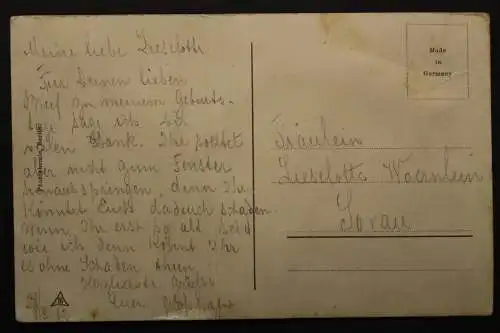 Meine liebe Lieselotte
Für Deinen lieben
Brief zu meinem Geburts-
tage sage ich Dir
vielen Dank. Ihr solltet
aber nicht zum Fenster
hinausspringen, denn Ihr
könntet Euch dadurch schaden
wenn Ihr erst so alt seid
wie ich dann könnt Ihr
es ohne Schaden thun!
Herzlichste Grüße
Euer
Made
in
Germany
Fräulein
Lieselotte
Sorau